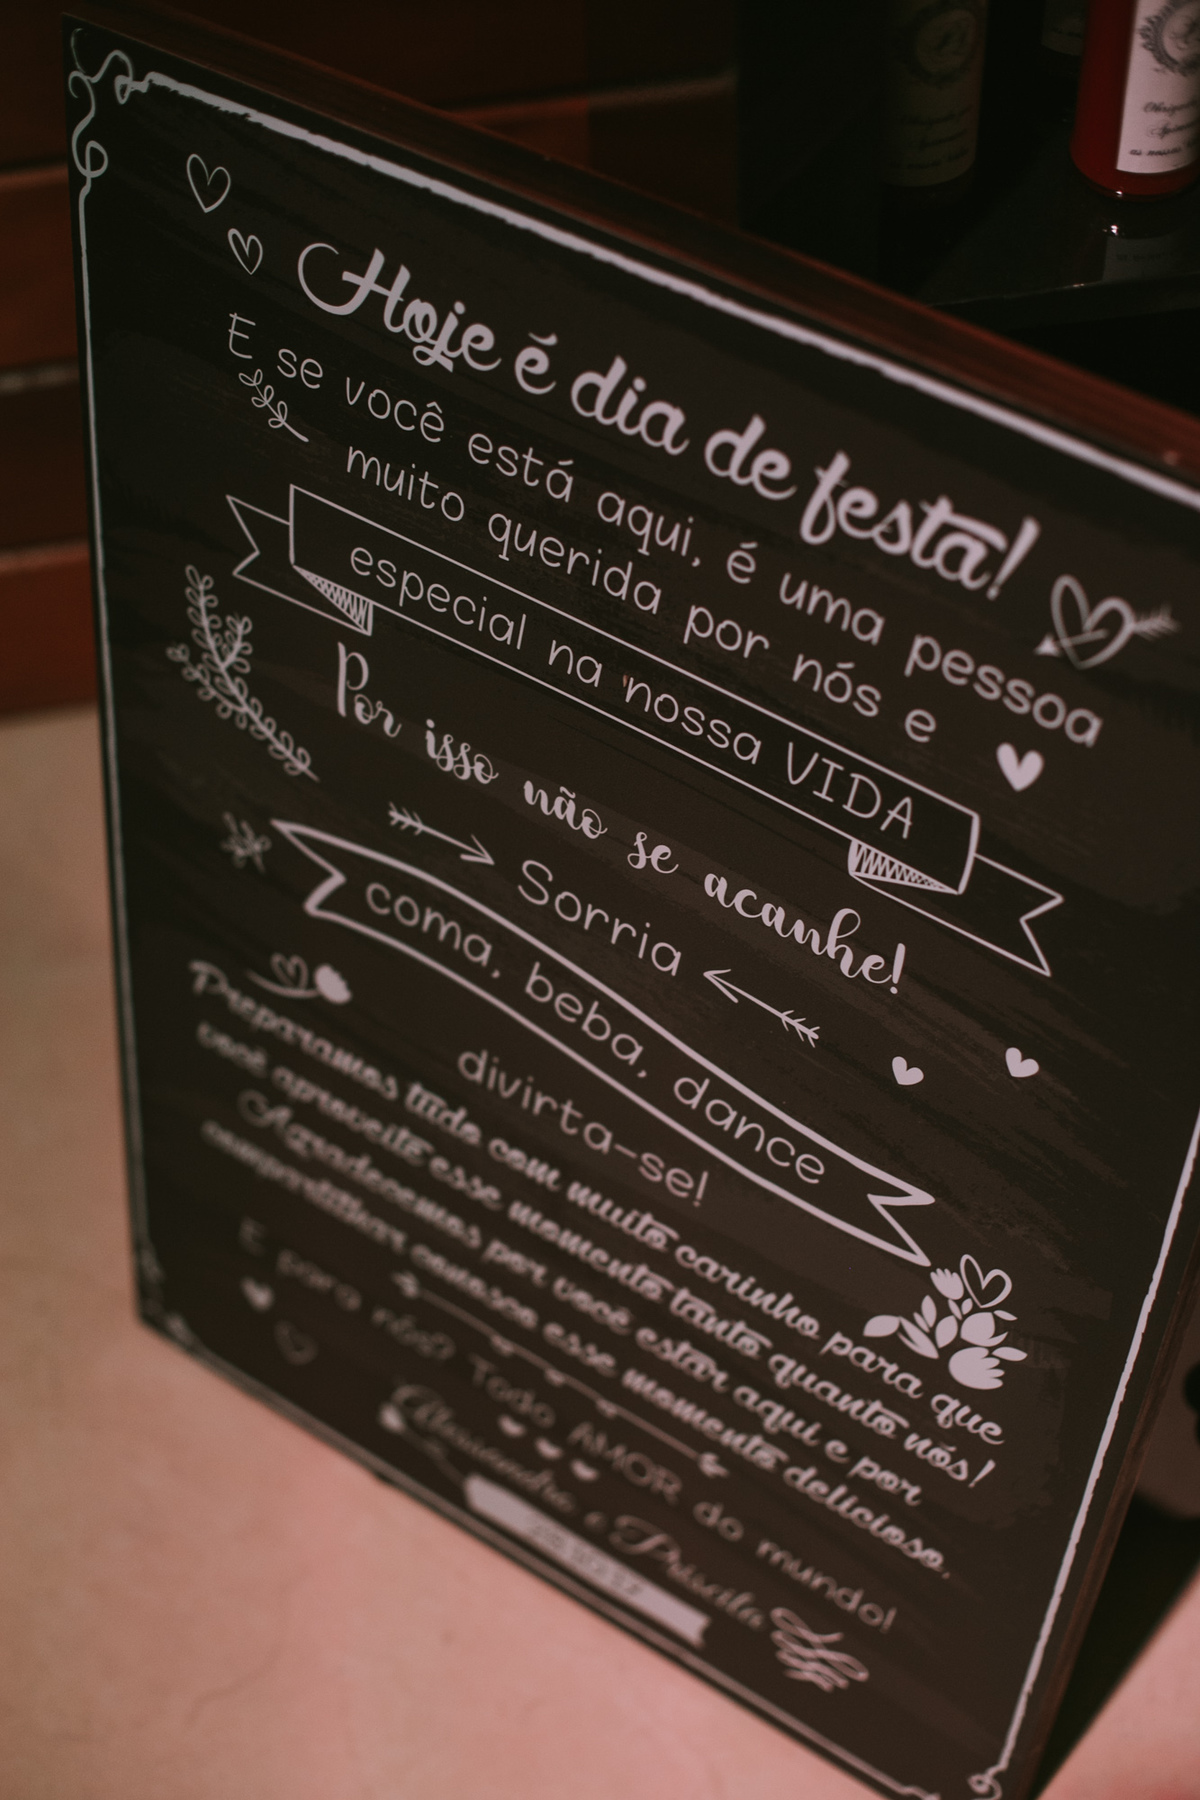 Hoje é dia de festa!
E se você está aqui, é uma pessoa
muito querida por nós e
especial na nossa VIDA
Por isso não se acanhe!
Sorria
coma, beba, dance
divirta-se!
Preparamos tudo com muito carinho para que
você aproveite esse momento tanto quanto nós!
Agradecemos por você estar aqui e por
compartilhar conosco esse momento delicioso.
E para nós? Todo AMOR do mundo!
e Priscila